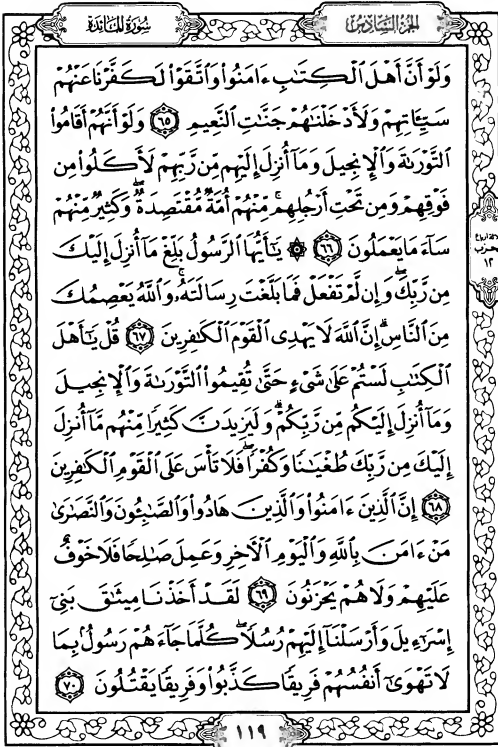 سُورَةُ المَائدة
الجزء السادس
وَلَوْ أَنَّ أَهْلَ ٱلْكِتَٰبِ ءَامَنُوا۟ وَٱتَّقَوْا۟ لَكَفَّرْنَا عَنْهُمْ
سَيِّـَٔاتِهِمْ وَلَأَدْخَلْنَٰهُمْ جَنَّٰتِ ٱلنَّعِيمِ ٦٥ وَلَوْ أَنَّهُمْ أَقَامُوا۟
ٱلتَّوْرَىٰةَ وَٱلْإِنجِيلَ وَمَآ أُنزِلَ إِلَيْهِم مِّن رَّبِّهِمْ لَأَكَلُوا۟ مِن
فَوْقِهِمْ وَمِن تَحْتِ أَرْجُلِهِم ۚ مِّنْهُمْ أُمَّةٌ مُّقْتَصِدَةٌ ۖ وَكَثِيرٌ مِّنْهُمْ
سَآءَ مَا يَعْمَلُونَ ٦٦ ۞ يَٰٓأَيُّهَا ٱلرَّسُولُ بَلِّغْ مَآ أُنزِلَ إِلَيْكَ
مِن رَّبِّكَ ۖ وَإِن لَّمْ تَفْعَلْ فَمَا بَلَّغْتَ رِسَالَتَهُۥ ۚ وَٱللَّهُ يَعْصِمُكَ
مِنَ ٱلنَّاسِ ۗ إِنَّ ٱللَّهَ لَا يَهْدِى ٱلْقَوْمَ ٱلْكَٰفِرِينَ ٦٧ قُلْ يَٰٓأَهْلَ
ٱلْكِتَٰبِ لَسْتُمْ عَلَىٰ شَىْءٍ حَتَّىٰ تُقِيمُوا۟ ٱلتَّوْرَىٰةَ وَٱلْإِنجِيلَ
وَمَآ أُنزِلَ إِلَيْكُم مِّن رَّبِّكُمْ ۗ وَلَيَزِيدَنَّ كَثِيرًا مِّنْهُم مَّآ أُنزِلَ
إِلَيْكَ مِن رَّبِّكَ طُغْيَٰنًا وَكُفْرًا ۖ فَلَا تَأْسَ عَلَى ٱلْقَوْمِ ٱلْكَٰفِرِينَ
٦٨ إِنَّ ٱلَّذِينَ ءَامَنُوا۟ وَٱلَّذِينَ هَادُوا۟ وَٱلصَّٰبِـُٔونَ وَٱلنَّصَٰرَىٰ
مَنْ ءَامَنَ بِٱللَّهِ وَٱلْيَوْمِ ٱلْءَاخِرِ وَعَمِلَ صَٰلِحًا فَلَا خَوْفٌ
عَلَيْهِمْ وَلَا هُمْ يَحْزَنُونَ ٦٩ لَقَدْ أَخَذْنَا مِيثَٰقَ بَنِىٓ
إِسْرَٰٓءِيلَ وَأَرْسَلْنَآ إِلَيْهِمْ رُسُلًا ۖ كُلَّمَا جَآءَهُمْ رَسُولٌۢ بِمَا
لَا تَهْوَىٰٓ أَنفُسُهُمْ فَرِيقًا كَذَّبُوا۟ وَفَرِيقًا يَقْتُلُونَ ٧٠
١١٩